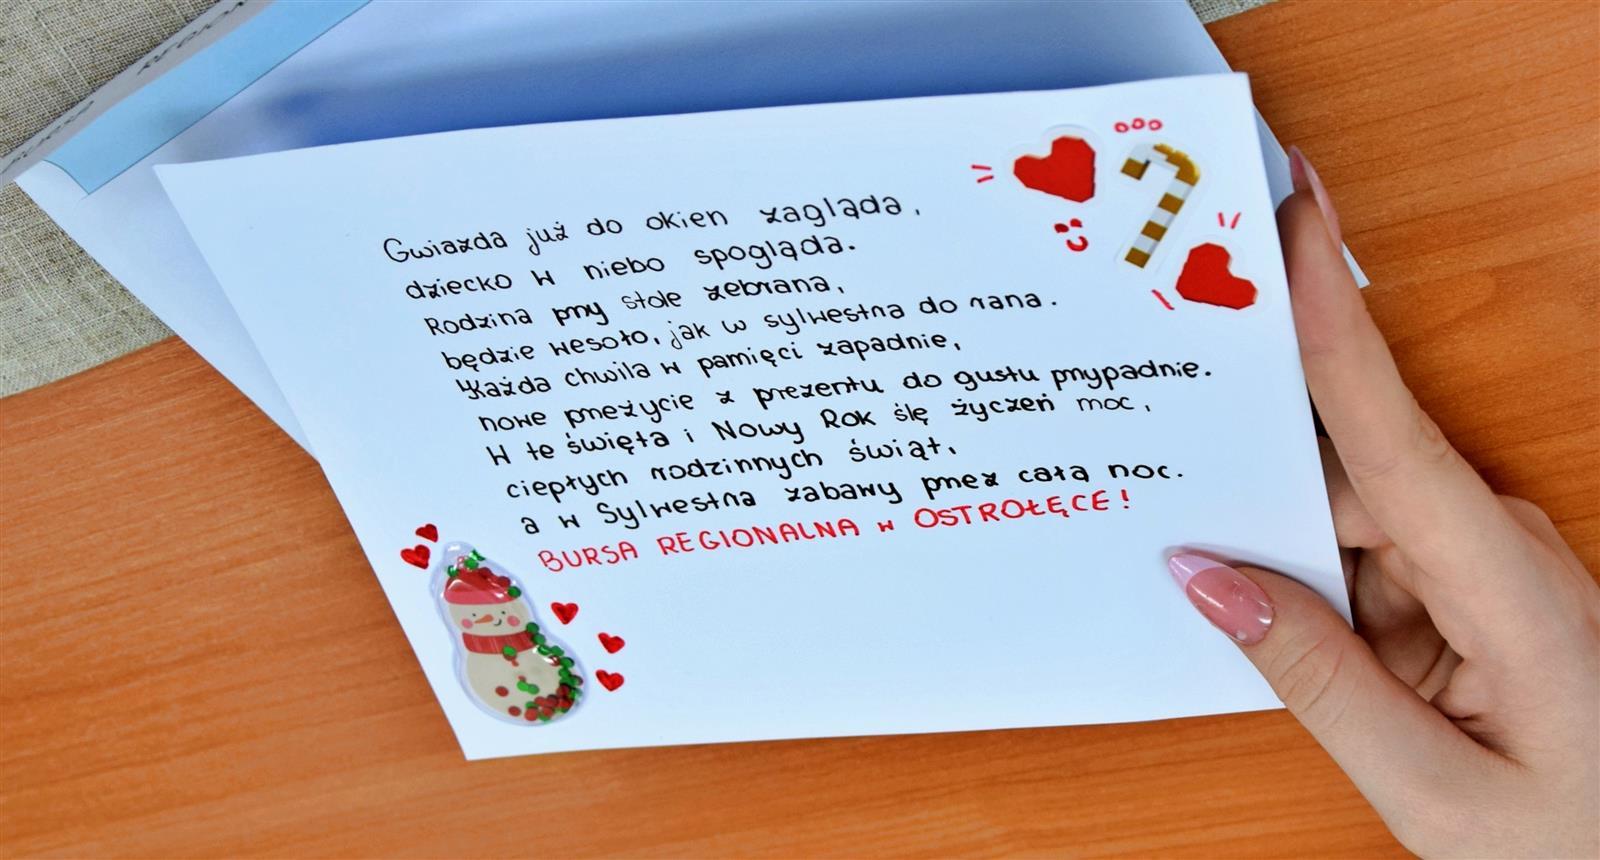 Gwiazda już do okien zagląda,
dziecko w niebo spogląda.
Rodzina przy stole zebrana,
będzie wesoło, jak w sylwestra do rana.
Każda chwila w pamięci zapadnie,
nowe przeżycie z prezentu do gustu przypadnie.
W te święta i Nowy Rok ślę życzeń moc,
ciepłych rodzinnych świąt,
a w Sylwestra zabawy przez całą noc.
BURSA REGIONALNA w OSTROŁĘCE!